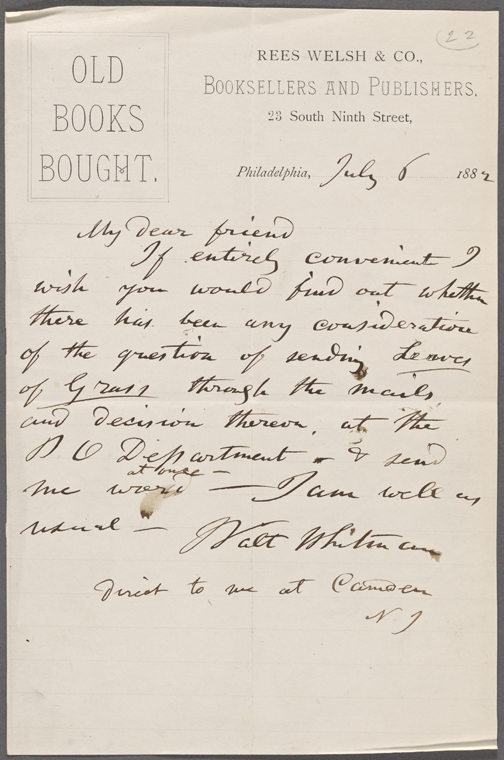 22
OLD
BOOKS
BOUGHT.
REES WELSH & CO.,
BOOKSELLERS AND PUBLISHERS.
23 South Ninth Street,
Philadelphia, July 6 1882
My dear friend
If entirely convenient I
wish you would find out whether
there has been any consideration
of the question of sending Leaves
of Grass through the mails,
and decision thereon, at the
P O Department - & send
at once -
me word — I am well as
usual — Walt Whitman
direct to me at Camden
N J